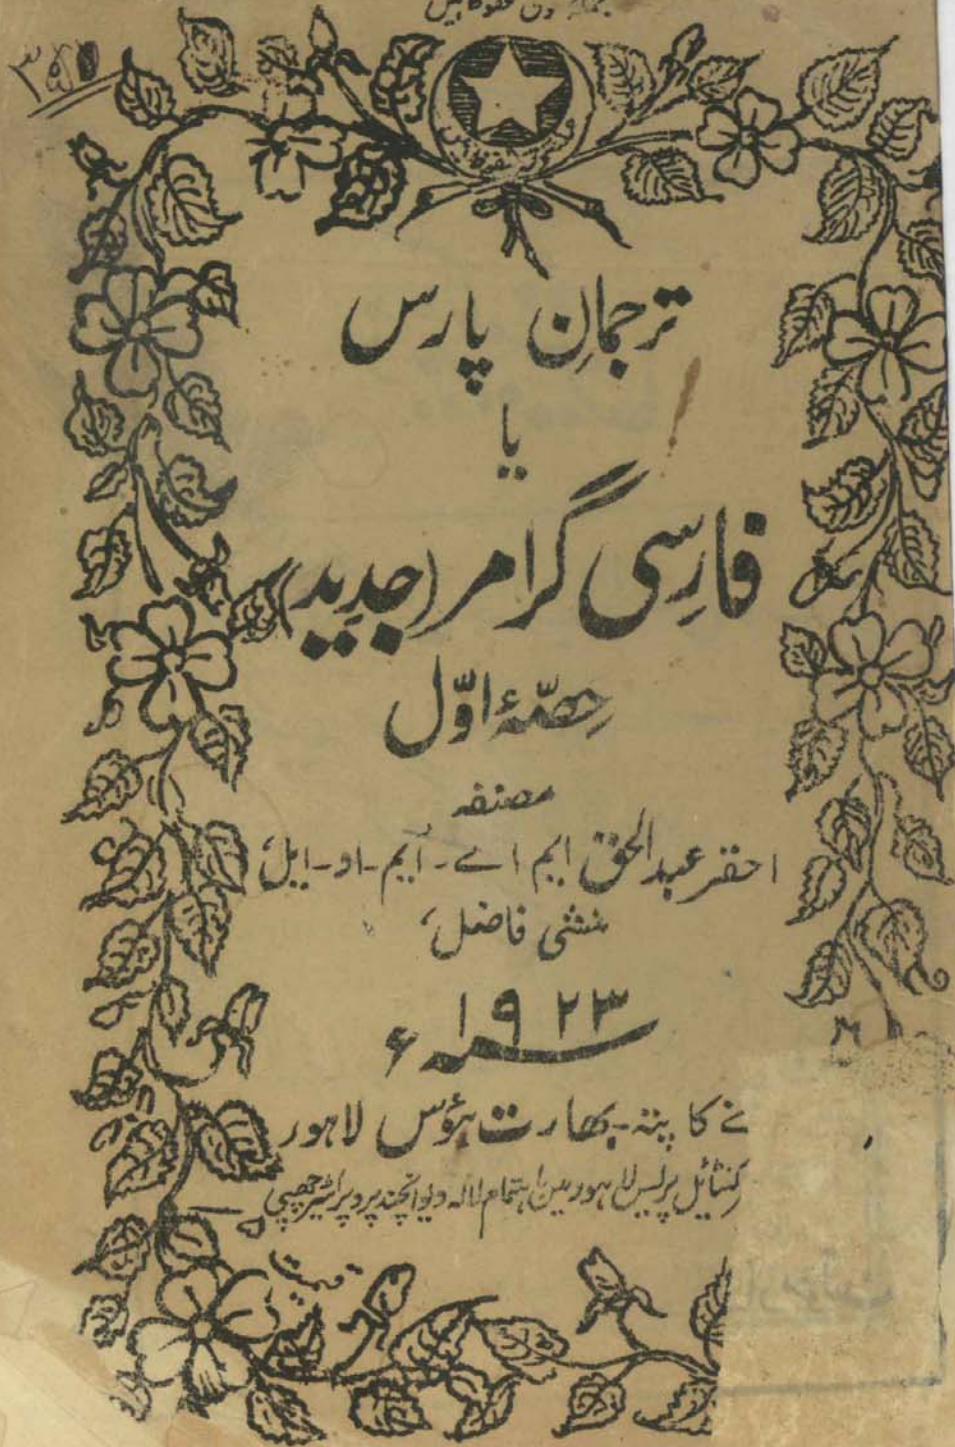 ۳۵۱
ترجمانِ پارس
یا
فارسی گرامر (جدید)
حصّۂ اوّل
مصنفہ
احقر عبدالحق ایم اے۔ ایم۔او۔ایل،
منشی فاضل،
سنہ ۱۹۲۳ء
نے کا پتہ۔ بھارت ہؤس لاہور
کنٹائیل پریس لاہور میں باہتمام لالہ دیوانچند پروپرائٹر چھپی
قیمت